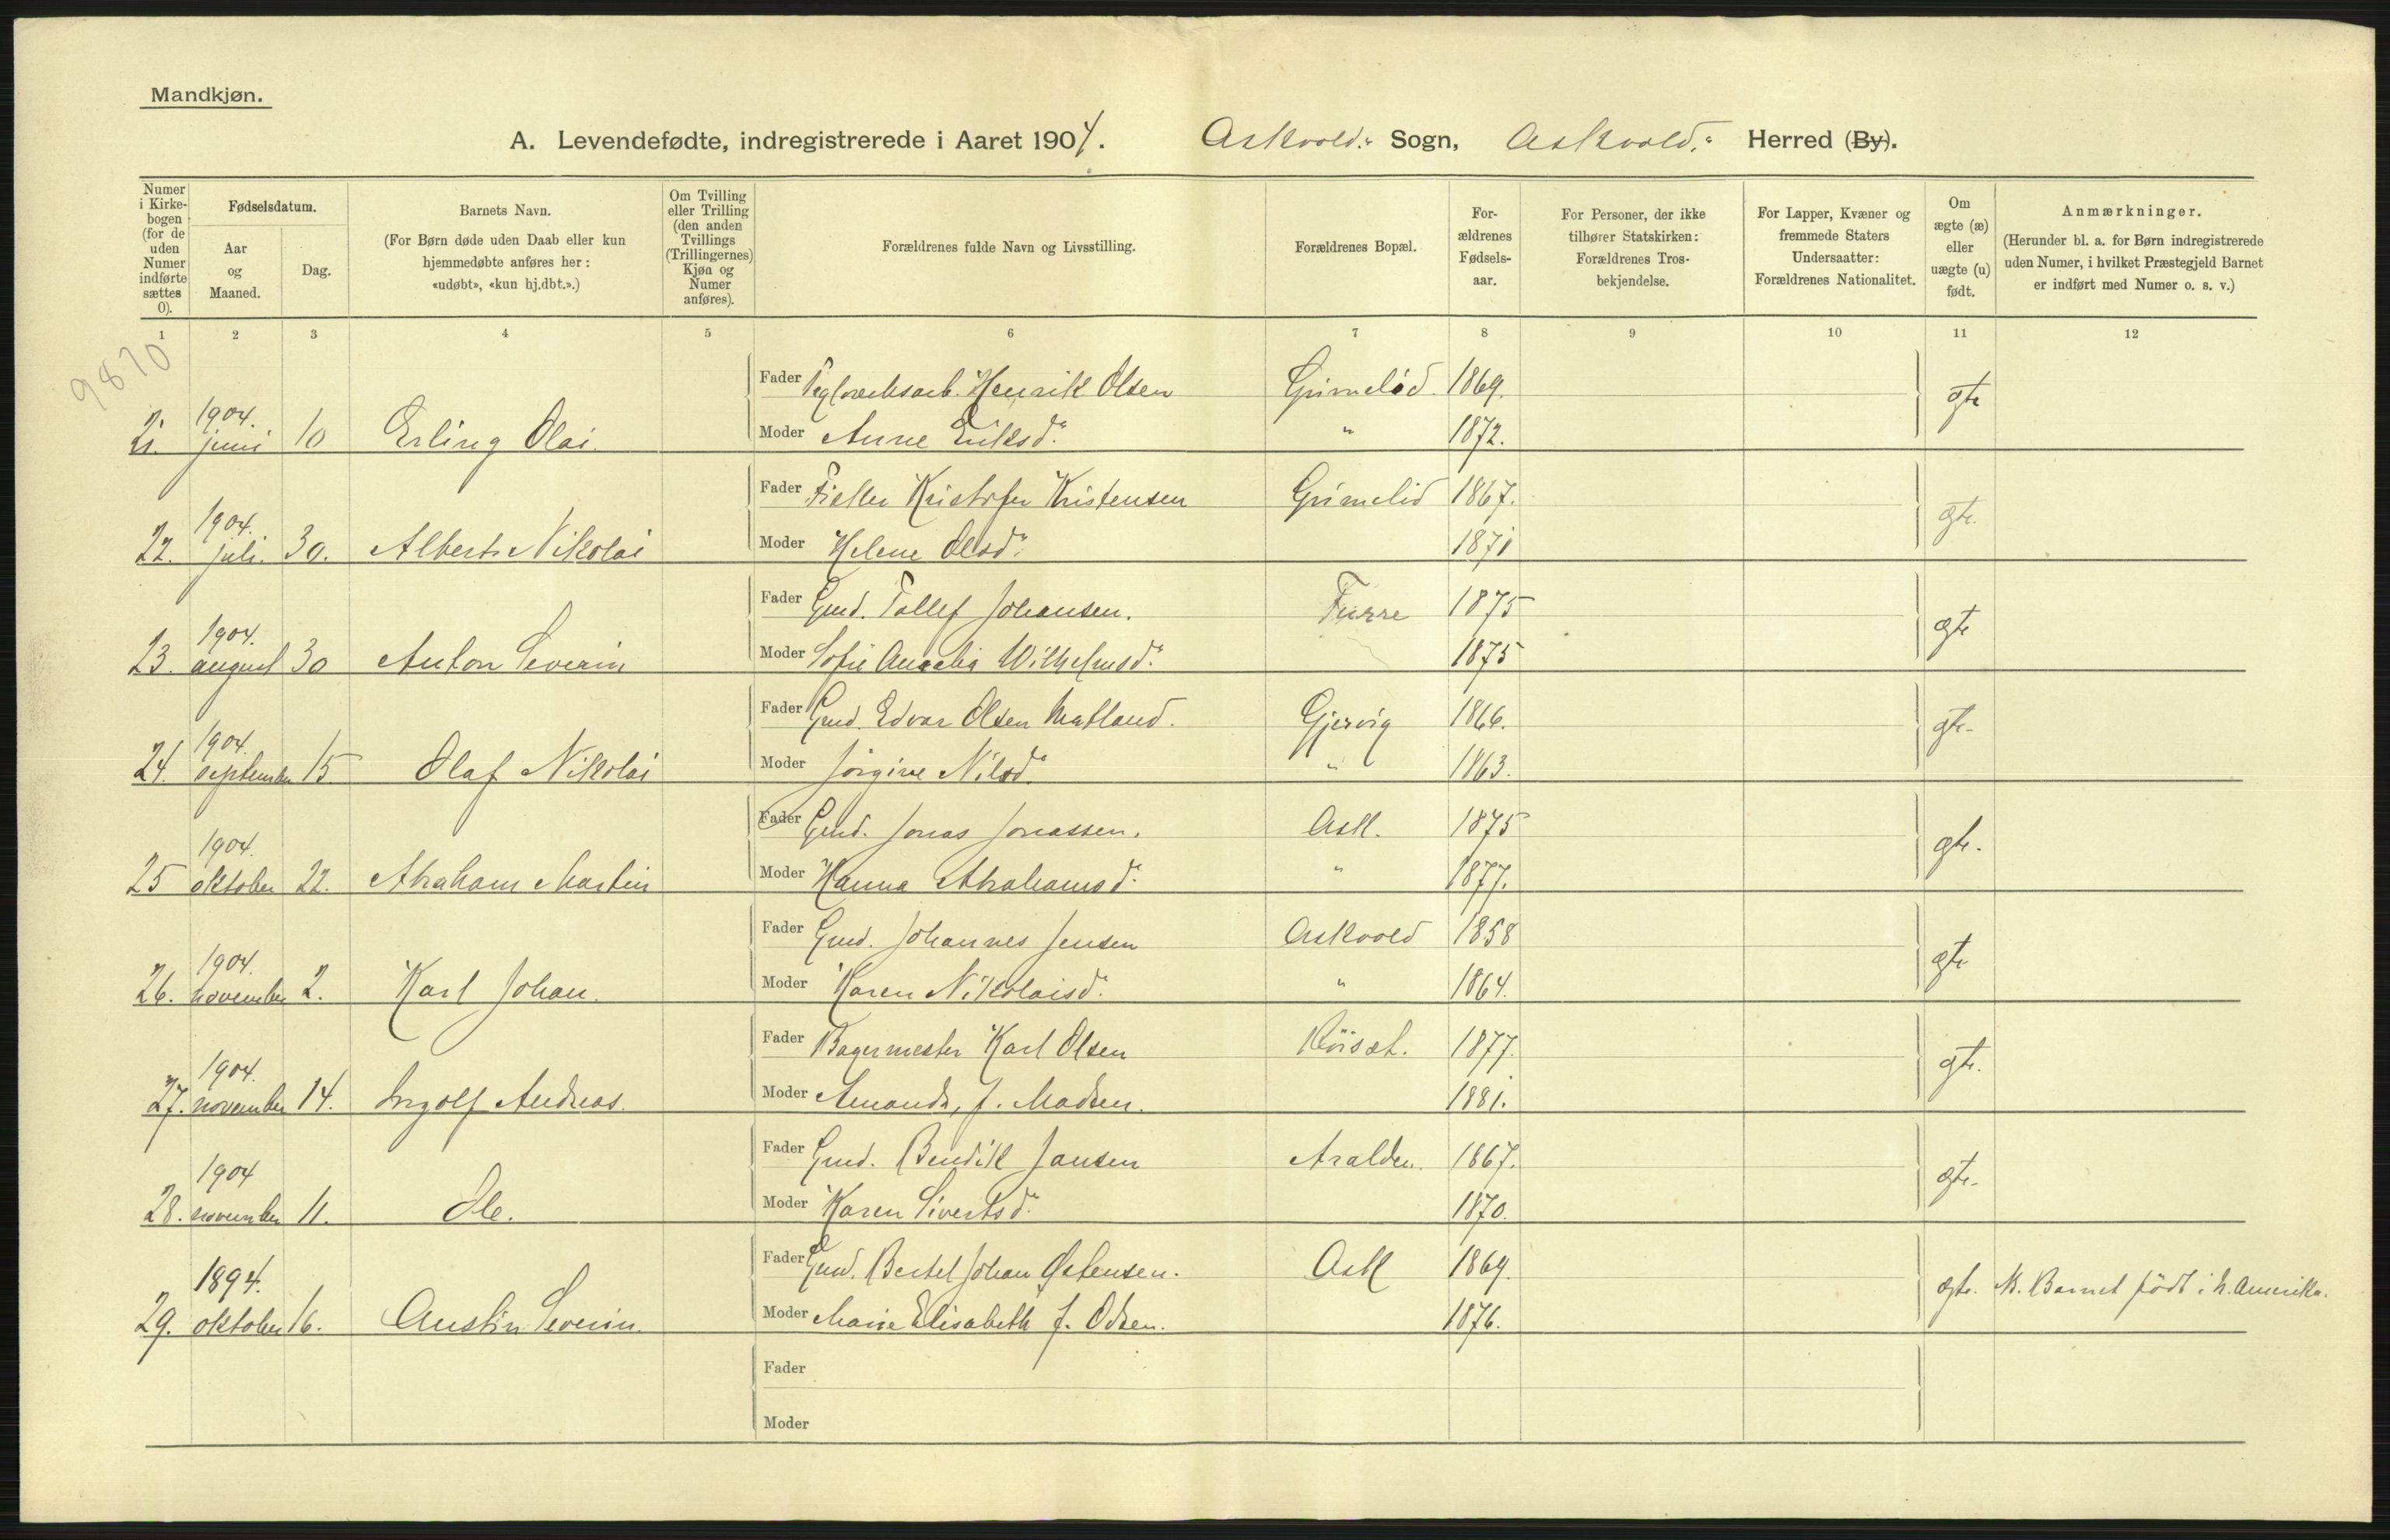 Mandkjøn.
A. Levendefødte, indregistrerede i Aaret 1904. Askvold: Sogn, Askvold: Herred (By).
Numer i Kirke-bogen (for de uden Numer indførte sættes 0).
Fødselsdatum.
Aar og Maaned.
Dag.
Barnets Navn.
(For Børn døde uden Daab eller kun hjemmedøbte anføres her: «udøbt», «kun hj.dbt.».)
Om Tvilling eller Trilling (den anden Tvillings (Trillingernes) Kjøn og Numer anføres).
Forældrenes fulde Navn og Livsstilling.
Forældrenes Bopæl.
For-ældrenes Fødsels-aar.
For Personer, der ikke tilhører Statskirken: Forældrenes Tros-bekjendelse.
For Lapper, Kvæner og fremmede Staters Undersaatter: Forældrenes Nationalitet.
Om ægte (æ) eller uægte (u) født.
Anmærkninger.
(Herunder bl. a. for Børn indregistrerede uden Numer, i hvilket Præstegjeld Barnet er indført med Numer o. s. v.)
1 2 3 4 5 6 7 8 9 10 11 12
9870
Fader Teglverksarb. Henrik Olsen Grimelid. 1869.
21. 1904. juni 10 Erling Olai. Moder Anne Eriksd: " 1872. gte
Fader Kristofer Kristensen Grimelid 1867.
22. 1904. juli. 30. Albert Nikolai Moder Helene Olsd: 1871 gte.
Fader Gmd. Tollef Johansen. Furre 1875
23. 1904. august 30 Anton Severin Moder Sofie Wilhelmsd: 1875 gte
Fader Gmd. Edvar Olsen Matland. Gjervig 1866.
24. 1904. september 15 Olaf Nikolai Moder Jørgine Nilsd: " 1863. gte.
Fader Gmd. Jonas Jonassen. Ask. 1875
25 1904. oktober 22. Abraham Martin Moder Hanna Abrahamsd: " 1877. gte.
Fader Gmd. Johannes Jensen Askvold 1858
26. 1904. november 2. Karl Johan. Moder Karen Nikolaisd: " 1864. gte
Fader Bagermester Karl Olsen 1877.
27. 1904. november 14. Ingolf Andreas. Moder Amanda, f. Madsen. 1881. gte.
Fader Gmd. Bendik Jansen Aralden. 1867.
28. 1904 november 11. Ole. Moder Karen Sivertsd: 1870. gte.
Fader Gmd. Bertel Johan Østensen. Ask 1869.
29. 1894. oktober 16. Austin Severin. Moder Marie Elisabeth f. Olsen. 1876. gte. N. Barnet født i N. Amerika.
Fader
Moder